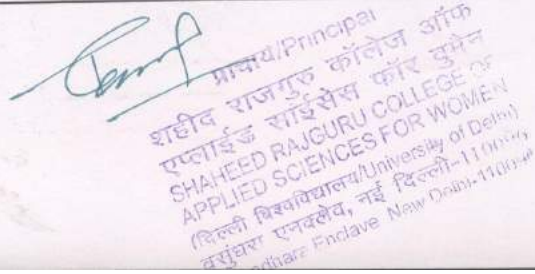 प्राचार्य/Principal
शहीद राजगुरु कॉलेज ऑफ
एप्लाईड साईंसेस फॉर वुमेन
SHAHEED RAJGURU COLLEGE OF
APPLIED SCIENCES FOR WOMEN
(दिल्ली विश्वविद्यालय/University of Delhi)
वसुंधरा एनक्लेव, नई दिल्ली-
Enclave New Delhi-